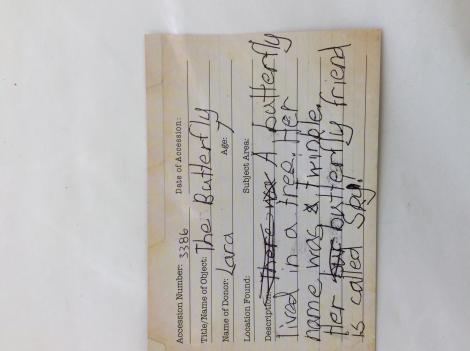 Accession Number: 3386 Date of Accession:
Title/Name of Object: The Butterfly
Name of Donor: Lara Age: 7
Location Found: Subject Area:
Description: There was A butterfly
lived in a tree. Her
name was twinkle.
Her butterfly friend
is called Sky.